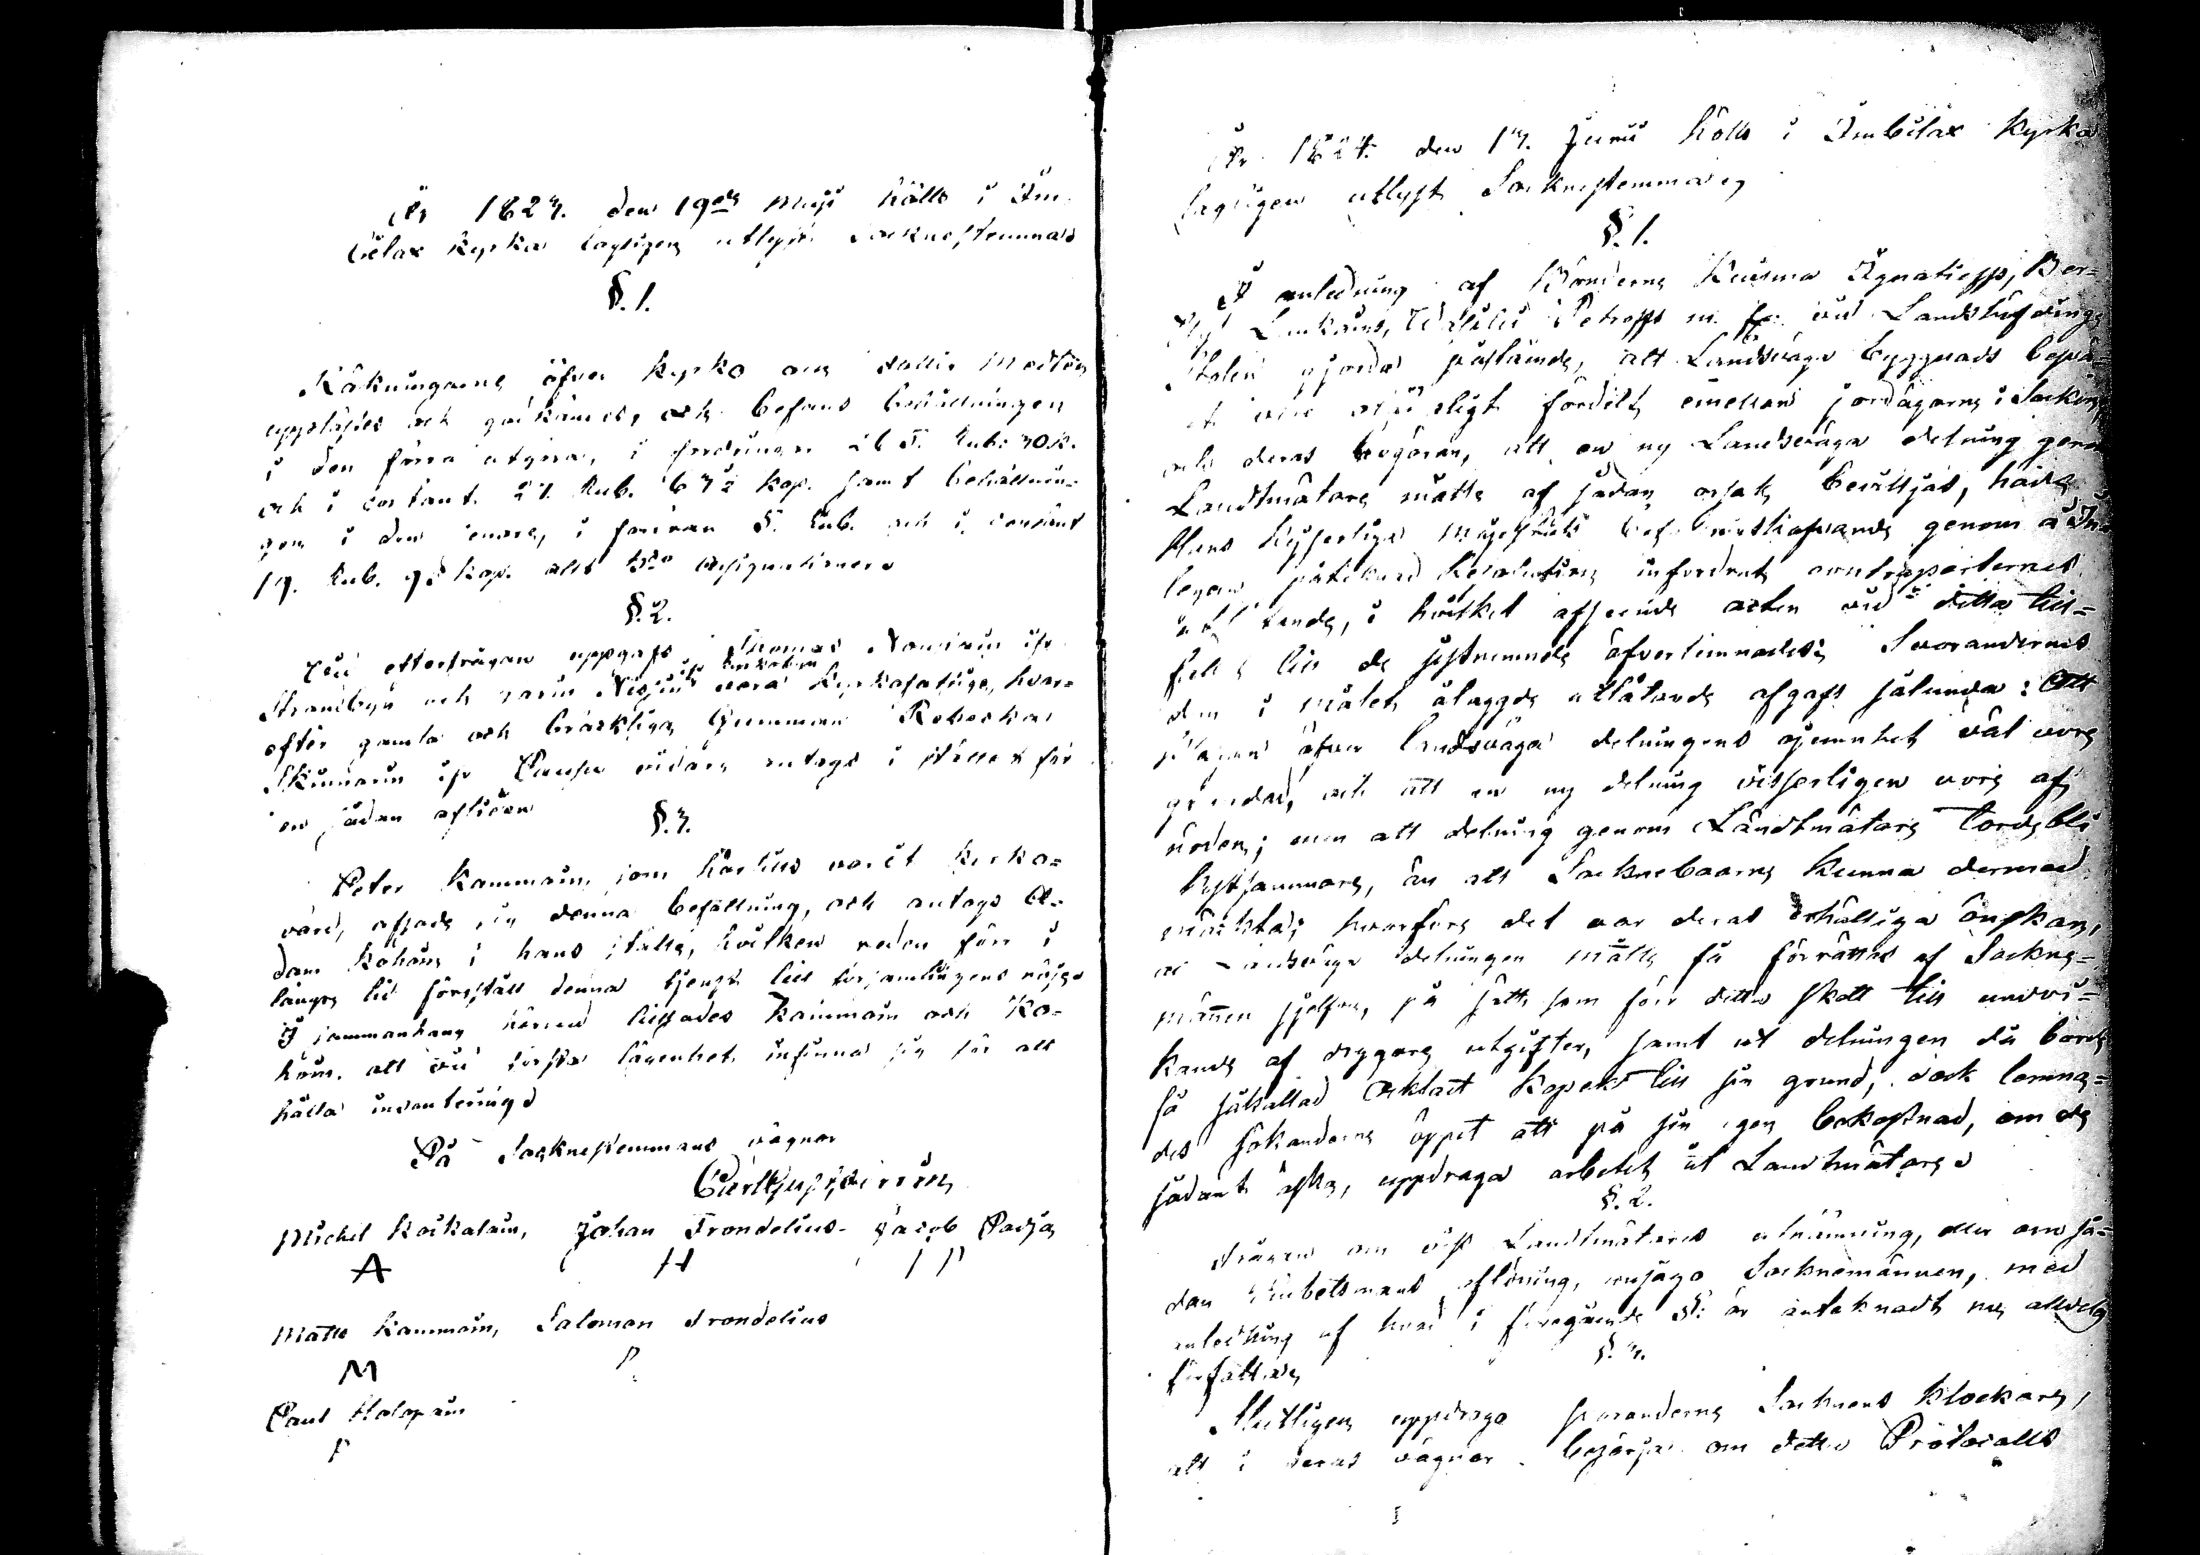 År 1827. den 19de Maji hölls i Im-
bilax Kyrka lagligen utlyst Sockenstemma
§. 1.
Räkningarne öfver Kyrko och
upplästes och godkändes, och befans behållningen
i den förra utgöra, i fordringar 26 S. Rub: 70 K.
och i contant. 21. Rub. 67½ kop. samt behållnin-
gen i den senare, i S. Rub. och i contant
19. Rub. kop. allt Bco Assignationer
§. 2.
Vid efterfrågan uppgafs Thomas
Strandbyn och vara Kyrkofattige, hvar-
efter gamla och bräckliga Gumman Rebecka
Skinnarin ifr vidare antogs i stället för
en sådan afliden
§. 3.
Peter Kammoin, som härtills varit Kyrko-
värd, afsade sig denna befattning, och antogs A-
dam Kohöin i hans ställe, hvilken redan förr i
längre tid förestått denna tjenst till församlingens nöje
I sammanhang härmed tillsades Kammoin och Ko-
höin. att vid första lägenhet infinna sig för att
hålla inventering
På Sockenstemmans vägnar
Michel Koikalain, Johan Trondelius. Jacob Parja
A H PP
Matts Kammoin, Salomon Trondelius
M P
Paul Holopain
P
År 1827. den 17. Junii hölls i Imbilax Kyrka
lagligen utlyst Sockenstemma
§. 1.
I anledning af Bönderne Kusma Ignatieffs,
Petroffs m. fl. vid Landshöfdinge
gjorda påstående, att Landsväga byggnads
fördelt emellan jordägarne i Socknen
och deras begäran, att en ny Landsväga delning genom
Landtmätare måtte af sådan orsak beviljas, hade
Hans Kejserliga Majestäts genom å
resolution infordrat contraparternes
i hvilket afseende acten vid detta till-
till de sistnemnde öfverlemnades; Svarandernes
den i målet ålaggde utlåtande afgafs sålunda: Att
öfver landsväga delningens ojemnhet väl vore
grundad, och att en ny delning visserligen vore af
nöden; men att delning genom Landtmätare torde bli
kostsammare, än att Sockneboarne kunna dermed
mäkta; hvarföre det var deras enhälliga önskan,
at Landsväga delningen måtte få förrättas af Sockne-
männen sjelfva, på sätt som förr detta skett till undvi-
kande af drygare utgifter, samt at delningen då borde
få såkallad Acktait Kopek till sin grund, dock lemna-
des sökanderne öppet att på sin egen bekostnad, om de
sådant äska, uppdraga arbetet åt Landtmätare
§. 2.
Frågan om viss Landtmätares utnämning, eller om så-
dan Embetsmans aflöning, Socknemännen, med
anledning af hvad i föregående §: är antecknadt
§. 3.
Slutligen uppdrogo Svaranderne Socknens Klockare,
att i deras vägnar besörja om detta Protocolls